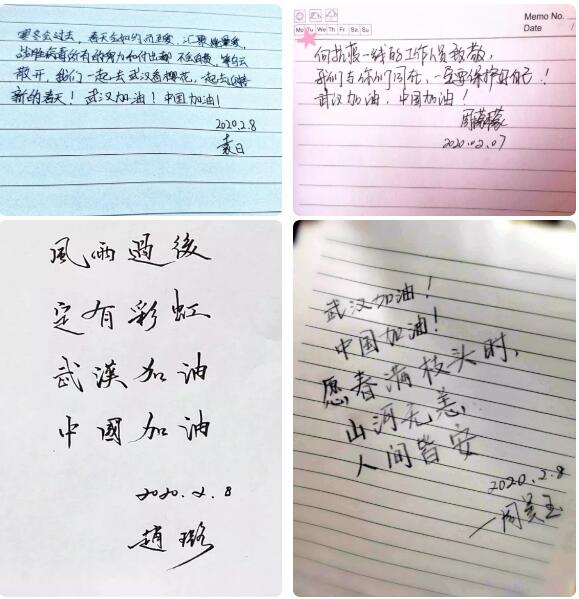 寒冬会过去，春天会如约而至，汇聚能量
战胜病毒所有的努力和付出都不会白费，
散开，我们一起去武汉看樱花，一起去
新的春天！武汉加油！中国加油！
2020.2.8
袁日
Memo No.
Mo Tu We Th Fr Sa Su
Date /
向抗疫一线的工作人员致敬，
我们与你们同在，一定要保护好自己！
武汉加油，中国加油！
周蒙蒙
2020.02.07
風雨過後
定有彩虹
武漢加油
中國加油
2020.2.8
趙璐
武汉加油！
中国加油！
愿春满枝头时，
山河无恙
人间皆安
2020.2.8
—周美玉